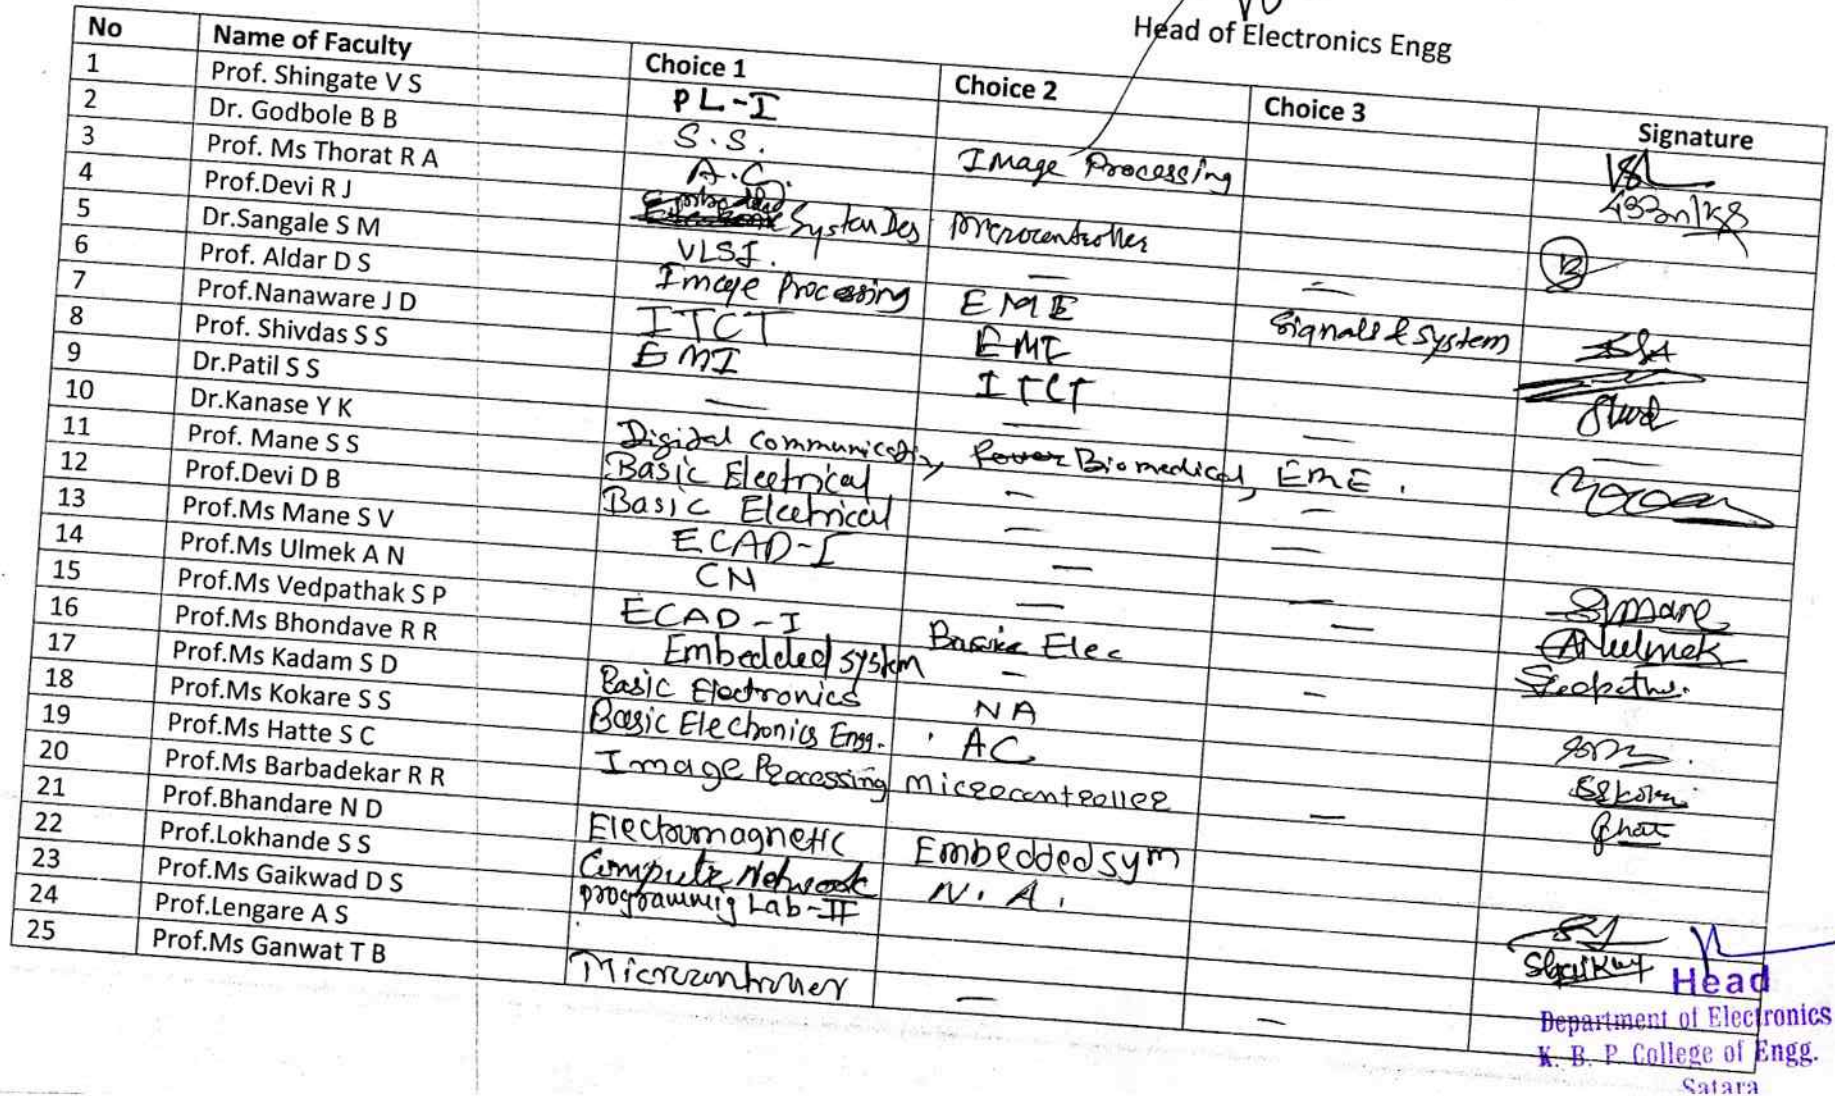 Head of Electronics Engg
No Name of Faculty Choice 1 Choice 2 Choice 3 Signature
1 Prof. Shingate V S PL-I
2 Dr. Godbole B B S.S. Image Processing
3 Prof. Ms Thorat R A A.C.
4 Prof.Devi R J Embedded System Des Microcontroller
5 Dr.Sangale S M VLSI. — —
6 Prof. Aldar D S Image Processing EME Signals & System
7 Prof.Nanaware J D ITCT EME
8 Prof. Shivdas S S EMI ITCT
9 Dr.Patil S S — — — —
10 Dr.Kanase Y K Digital Communication, Biomedical, EME.
11 Prof. Mane S S Basic Electrical — —
12 Prof.Devi D B Basic Electrical — —
13 Prof.Ms Mane S V ECAD-I — — SMane
14 Prof.Ms Ulmek A N CN — — ANUlmek
15 Prof.Ms Vedpathak S P ECAD-I Basic Elec
16 Prof.Ms Bhondave R R Embedded system — —
17 Prof.Ms Kadam S D Basic Electronics NA
18 Prof.Ms Kokare S S Basic Electronics Engg. AC
19 Prof.Ms Hatte S C Image Processing Microcontroller —
20 Prof.Ms Barbadekar R R
21 Prof.Bhandare N D Electromagnetic Embedded sym
22 Prof.Lokhande S S Computer Network N.A.
23 Prof.Ms Gaikwad D S programmig Lab-II
24 Prof.Lengare A S
25 Prof.Ms Ganwat T B Microcontroller — —
Head
Department of Electronics
K. B. P. College of Engg.
Satara